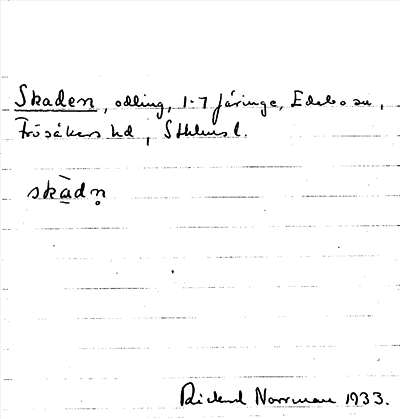 Skaden, odling, 1-7 Järinge, Edebo sn,
Frösåkers hd, Sthlms l.
skàdn̥
Rickard Norrman 1933.